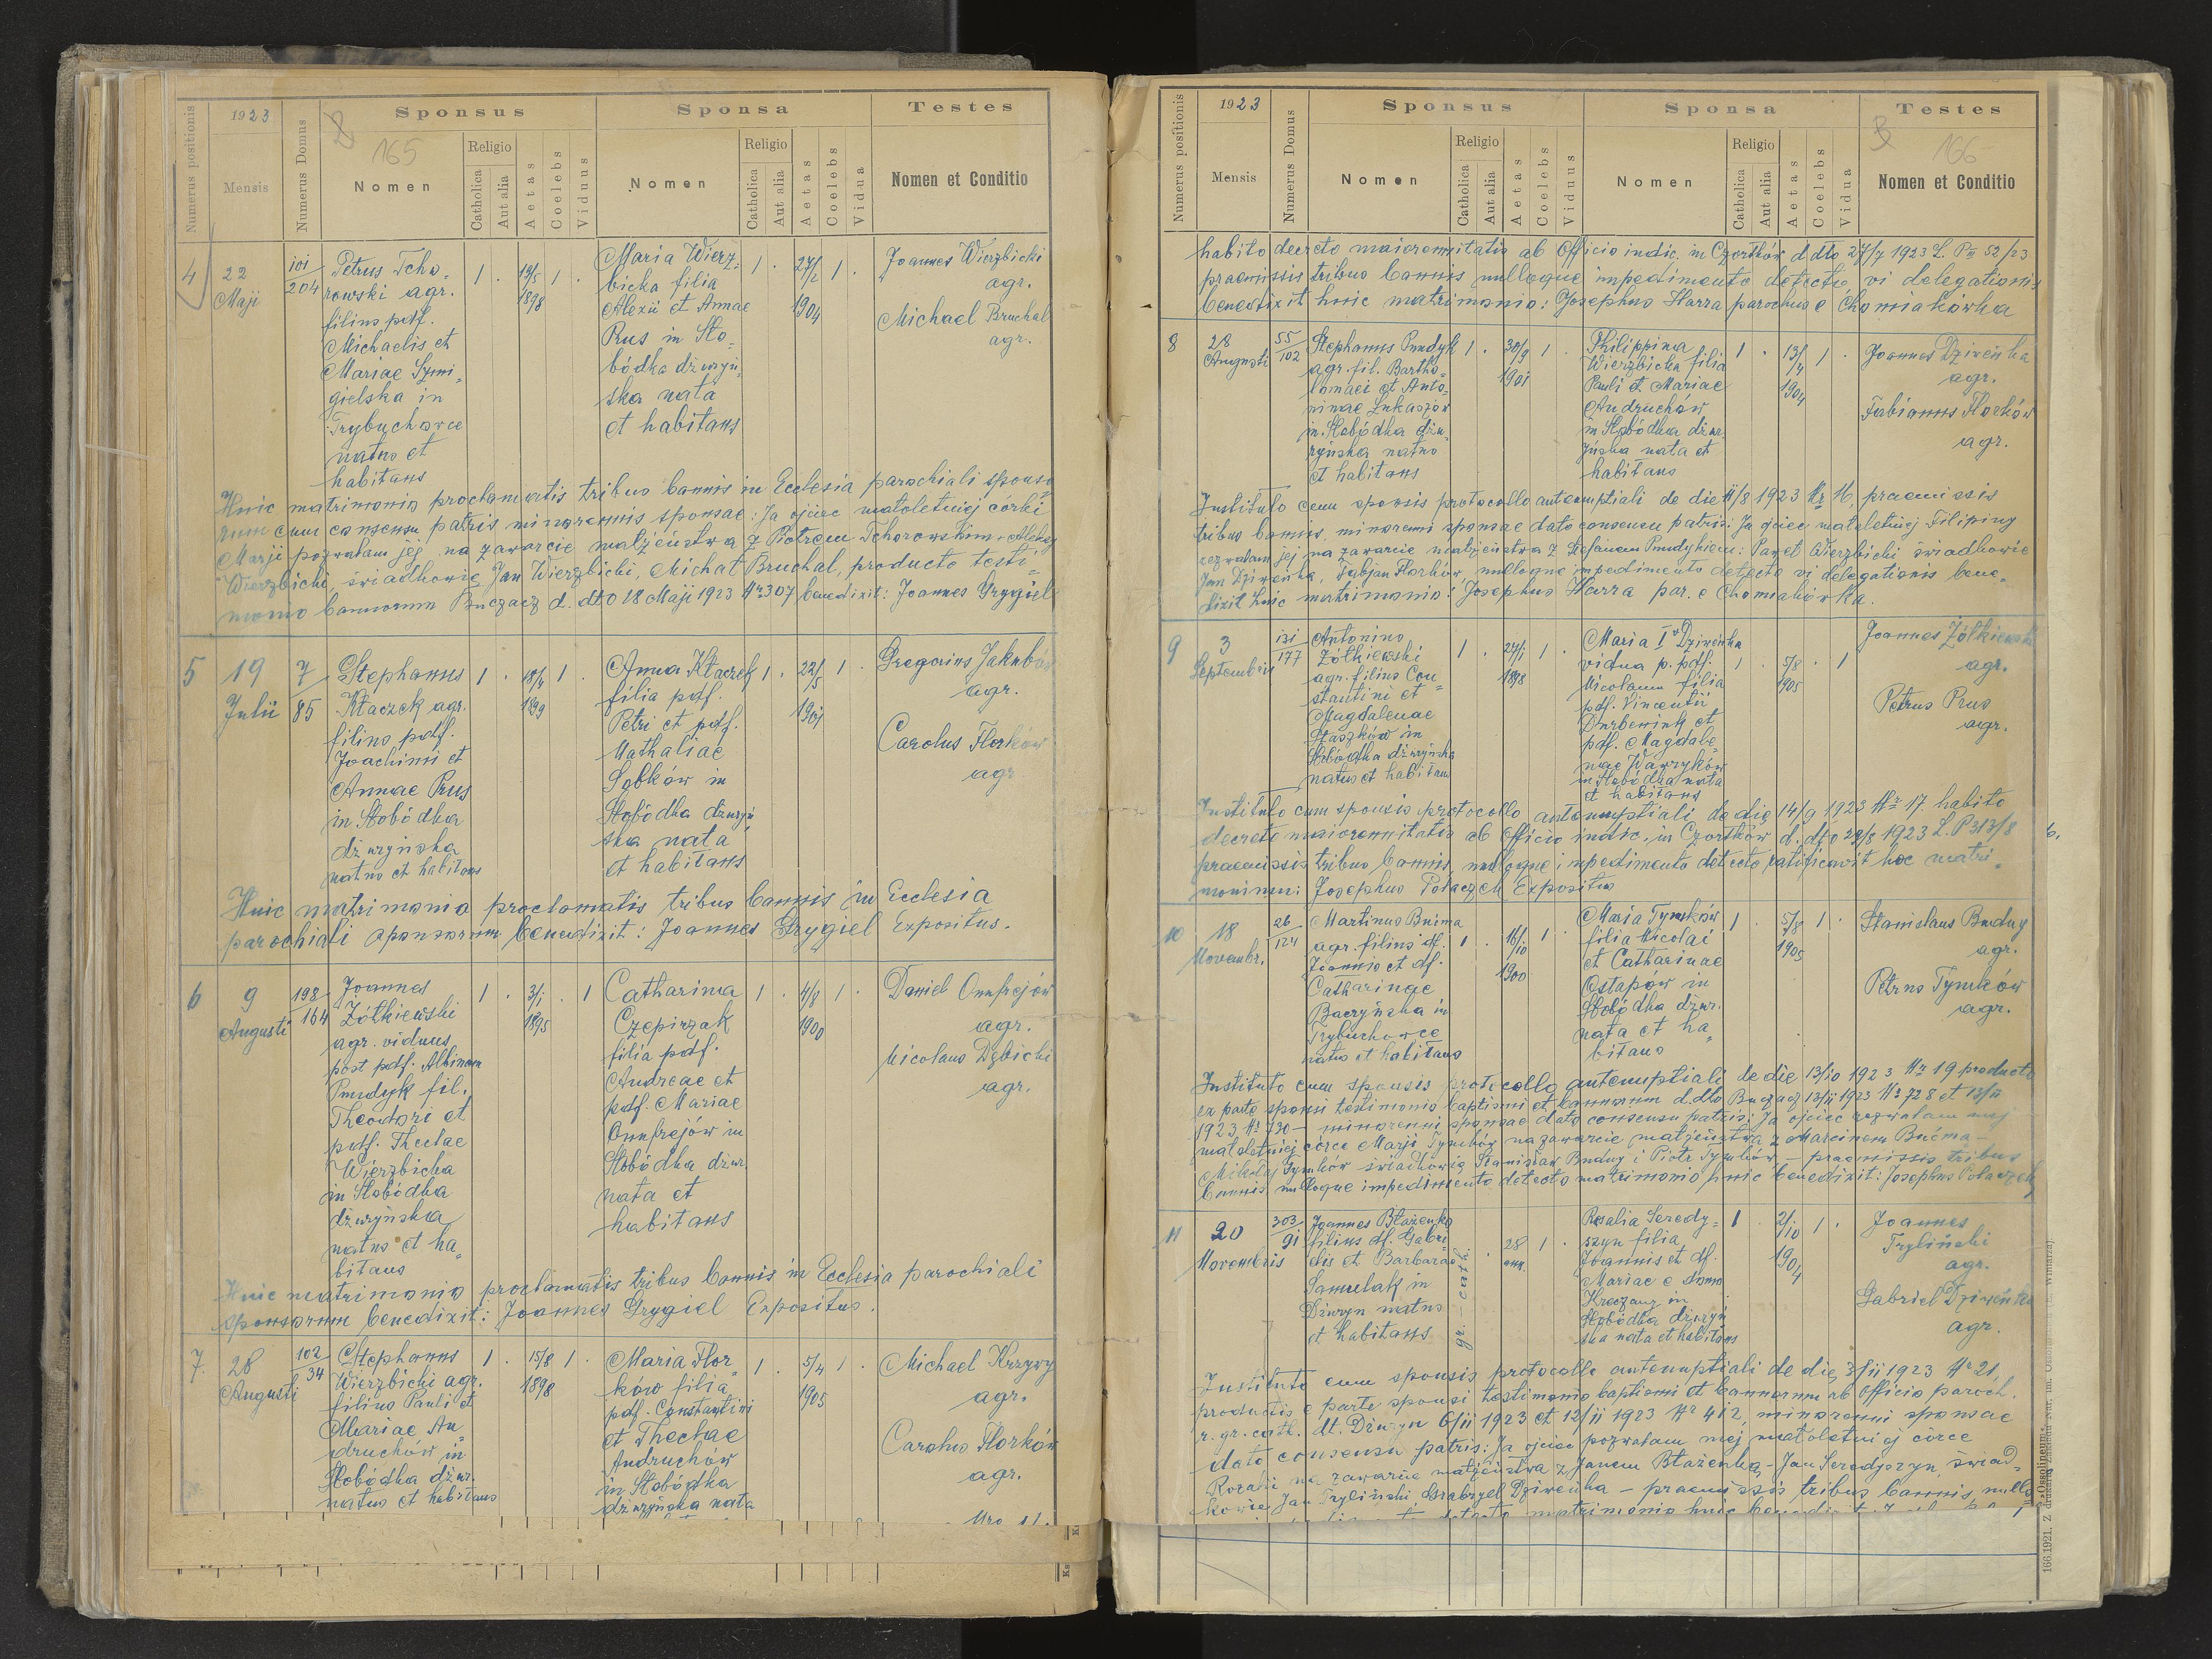 Numerus positionis
1923
Mensis
Numerus Domus
165
Sponsus
Nomen
Religio
Catholica
Aut alia
Aetas
Coelebs
Viduus
Sponsa
Nomen
Religio
Catholica
Aut alia
Aetas
Coelebs
Vidua
Testes
Nomen et Conditio
4
22
Maji
101
204
Petrus Tcho-
rowski agr.
filius pdf.
Michaelis et
Mariae Szmi-
gielska in
Trybuchowce
natus et
habitans
1 . 19/5 1 .
1898
Maria Wierz-
bicka filia
Alexii et Annae
Prus in Sło-
bódka dżuryń-
ska nata
et habitans
1 . 27/2 1 .
1904
Joannes Wierzbicki
agr.
Michael Bruchal
agr.
Huic matrimonio proclamatis tribus bannis in Ecclesia parochiali sponso-
rum cum consensu patris minorennis sponsae: Ja ojciec małoletniej córki
Marji pozwalam jej na zawarcie małżeństwa z Piotrem Tchorowskim - Aleksy
Wierzbicki, świadkowie Jan Wierzbicki, Michał Bruchal, producto testi-
monio bannorum Buczacz d. dto 18 Maji 1923 Nr 307 benedixit: Joannes Grygiel
5
19
Julii
7
85
Stephanus
Kłaczek agr.
filius pdf.
Joachimi et
Annae Prus
in Słobódka
dżuryńska
natus et habitans
1 . 18/4 1 .
1899
Anna Kłaczek
filia pdf.
Petri et pdf.
Nathaliae
Sobków in
Słobódka dżuryń
ska nata
et habitans
1 . 22/5 1 .
1901
Gregorius Jakubów
agr.
Carolus Florków
agr.
Huic matrimonio proclamatis tribus bannis in Ecclesia
parochiali sponsorum benedixit: Joannes Grygiel Expositus.
6
9
Augusti
198
164
Joannes
Żółkiewski
agr. viduus
post pdf. Albinam
Pundyk fil.
Theodori et
pdf. Theclae
Wierzbicka
in Słobódka
dżuryńska
natus et ha-
bitans
1 . 3/1 . 1
1895
Catharina
Czepirzak
filia pdf.
Andreae et
pdf. Mariae
Onufrejów in
Słobódka dżur.
nata et
habitans
1 . 4/8 1 .
1900
Daniel Onufrejów
agr.
Nicolaus Dębicki
agr.
Huic matrimonio proclamatis tribus bannis in Ecclesia parochiali
sponsorum benedixit: Joannes Grygiel Expositus.
7.
28
Augusti
102
34
Stephanus
Wierzbicki agr.
filius Pauli et
Mariae An-
druchów in
Słobódka dżur.
natus et habitans
1 . 15/8 1 .
1898
Maria Flor-
ków filia
pdf. Constantini
et Theclae
Andruchów
in Słobódka
dżuryńska nata
1 . 5/4 1 .
1905
Michael Krzywy
agr.
Carolus Florków
agr.
Numerus positionis
1923
Mensis
Numerus Domus
Sponsus
Nomen
Religio
Catholica
Aut alia
Aetas
Coelebs
Viduus
Sponsa
Nomen
Religio
Catholica
Aut alia
Aetas
Coelebs
Vidua
Testes
166
Nomen et Conditio
habito decreto maiorennitatis ab Officio iudic. in Czortków d dto 27/7 1923 L. P III 52/23
praemissis tribus bannis nulloque impedimento detecto, vi delegationis
benedixit huic matrimonio: Josephus Harra parochus e Chomiakówka
8
28
Augusti
55
102
Stephanus Pundyk
agr. fil. Bartho-
lomaei et Anto-
ninae Łukaszów
in Słobódka dżu-
ryńska natus
et habitans
1 . 30/9 1 .
1901
Philippina
Wierzbicka filia
Pauli et Mariae
Andruchów
in Słobódka dżur-
yńska nata et
habitans
1 . 13/4 1 .
1904
Joannes Dziweńka
agr.
Fabianus Florków
agr.
Instituto cum sponsis protocollo antenuptiali de die 11/8 1923 Nr 16, praemissis
tribus bannis, minorenni sponsae dato consensu patris: Ja ojciec małoletniej Filipiny
zezwalam jej na zawarcie małżeństwa z Stefanem Pundykiem: Paweł Wierzbicki świadkowie
Jan Dziweńka, Fabjan Florków, nulloque impedimento detecto vi delegationis bene-
dixit huic matrimonio: Josephus Harra par. e Chomiakówka.
9
3
Septembris
131
177
Antonius
Żółkiewski
agr. filius Con-
stantini et
Magdalenae
Staszków in
Słobódka dżuryńska
natus et habitans
1 . 24/1 1 .
1898
Maria I° Dziweńka
vidua p. pdf.
Nicolaum filia
pdf. Vincentii
Durbeniuk et
pdf. Magdale-
nae Wawryków
in Słobódka nata
et habitans
1 . 5/8 . 1
1905
Joannes Żółkiewski
agr.
Petrus Prus
agr.
Instituto cum sponsis protocollo antenuptiali de die 14/9 1923 Nr 17 habito
decreto maiorennitatis ab Officio iudic. in Czortków d. dto 28/8 1923 L. P 313/8
praemissis tribus bannis, nulloque impedimento detecto ratificavit hoc matri-
monium: Josephus Połaczek Expositus
10
18
Novembr.
26
124
Martinus Bućma
agr. filius df.
Joannis et df.
Catharinae
Baczyńska in
Trybuchowce
natus et habitans
1 . 16/10 1 .
1900
Maria Tymków
filia Nicolai
et Catharinae
Ostapów in
Słobódka dżur.
nata et ha-
bitans
1 . 5/8 1 .
1905
Stanislaus Budny
agr.
Petrus Tymków
agr.
Instituto cum sponsis protocollo antenuptiali de die 13/10 1923 Nr 19 producto
ex parte sponsi testimonio baptismi et bannorum d.dto Buczacz 13/11 1923 Nr 728 et 13/11
1923 Nr 730 - minorenni sponsae dato consensu patris: Ja ojciec zezwalam mej
małoletniej córce Marji Tymków na zawarcie małżeństwa z Marcinem Bućma -
Mikołaj Tymków świadkowie Stanisław Budny i Piotr Tymków - praemissis tribus
bannis nulloque impedimento detecto matrimonio huic benedixit: Josephus Połaczek
11
20
Novembris
303
91
Joannes Błażenko
filius df. Gabri-
elis et Barbarae
Samulak in
Dżuryn natus
et habitans
gr. - cath.
. 28 1 .
ann.
Rosalia Seredy-
szyn filia
Joannis et df.
Mariae e domo
Kreczanz in
Słobódka dżuryń
ska nata et habitans
1 . 2/10 1 .
1904
Joannes
Tryliński
agr.
Gabriel Dziweńka
agr.
Instituto cum sponsis protocollo antenuptiali de die 3/11 1923 Nr 21,
productis e parte sponsi testimonio baptismi et bannorum ab Officio paroch.
r. gr. cath. dt. Dżuryn 6/11 1923 et 12/11 1923 Nr 412, minorenni sponsae
dato consensu patris: Ja ojciec pozwalam mej małoletniej córce
Rozalii na zawarcie małżeństwa z Janem Błażenko - Jan Seredyszyn, świad-
kowie Jan Tryliński, Gabryel Dziweńka - praemissis tribus bannis nullo
matrimonio huic
166.1921. Z drukarni Zakładu Nar. im. Ossolińskich (E. Winiarza).
„Ossolineum“